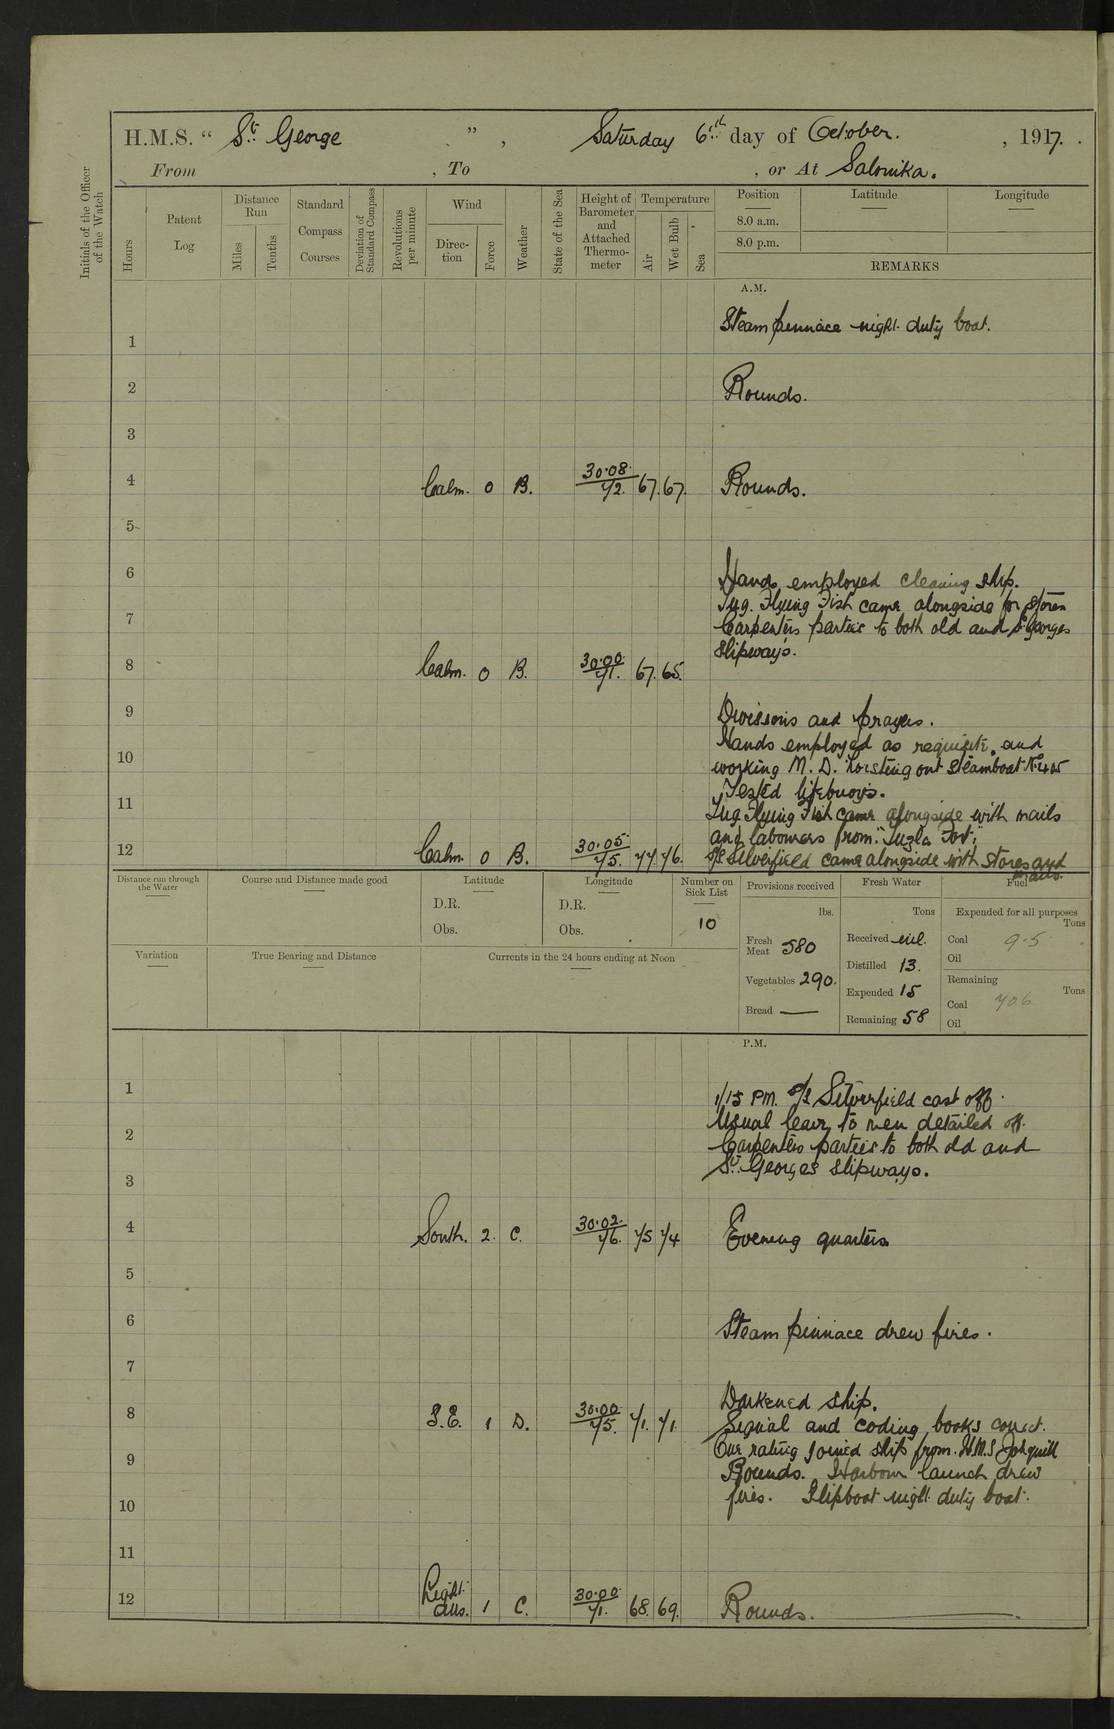 H.M.S. “ St George ” , Saturday 6th day of October. , 1917. .
From , To , or At Salonika.
Initials of the Officer of the Watch
Hours
Patent Log
Distance Run
Miles
Tenths
Standard Compass Courses
Deviation of Standard Compass
Revolutions per minute
Wind
Direc-tion
Force
Weather
State of the Sea
Height of Barometer and Attached Thermo-meter
Temperature
Air
Wet Bulb
Sea
Position
8.0 a.m.
8.0 p.m.
Latitude
Longitude
REMARKS
A.M.
Steam pinnace night duty boat.
1
2 Rounds.
3
4 Calm. 0 B. 30.08 72. 67. 67. Rounds.
5
6 Hands employed cleaning ship.
Tug. Flying Fish came alongside for stores
7 Carpenters parties to both old and St Georges
slipways.
8 Calm. 0 B. 30.00 71. 67. 65.
9 Divisions and prayers.
Hands employed as requisite, and
10 working M.D. hoisting out steamboat No 415
Tested lifebuoys.
11 Tug Flying Fish came alongside with mails
and labourers from "Tuzla Fort;"
12 Calm. 0 B. 30.05 75. 77 76. S/S Silverfield came alongside with stores and
mails.
Distance run through the Water
Course and Distance made good
Latitude
D.R.
Obs.
Longitude
D.R.
Obs.
Number on Sick List
10
Provisions received
lbs.
Fresh Meat 580
Vegetables 290.
Bread —
Fresh Water
Tons
Received nil.
Distilled 13.
Expended 15
Remaining 58
Fuel
Expended for all purposes
Tons
Coal 9.5
Oil
Remaining
Tons
Coal 706
Oil
Variation
True Bearing and Distance
Currents in the 24 hours ending at Noon
P.M.
1 1/15 PM. S/S Silverfield cast off.
Usual leave to men detailed off.
2 Carpenters parties to both old and
3 St. Georges slipways.
4 South. 2. C. 30.02. 76. 75 74 Evening quarters
5
6 Steam pinnace drew fires.
7
Darkened ship.
8 S.E. 1 D. 30.00 75. 71. 71. Signal and coding books correct.
One rating joined ship from H.M.S Jonquil
9 Rounds. Harbour launch drew
10 fires. Slipboat night duty boat.
11
12 Light airs. 1 C. 30.00 71. 68. 69. Rounds.